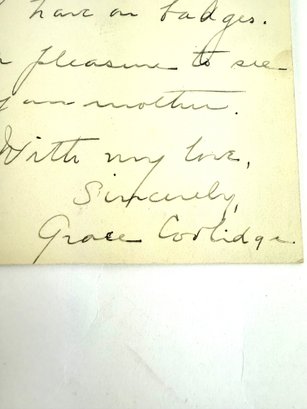 have on badges.
pleasure to see
your mother.
With my love,
Sincerely,
Grace Coolidge.